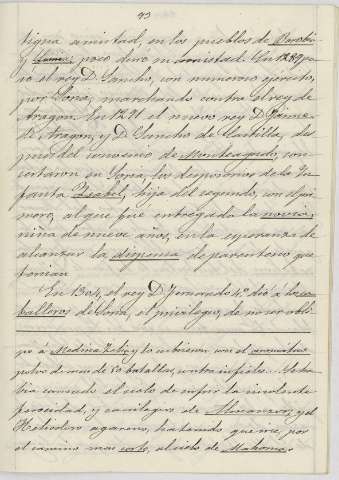 43
tigua amistad, en los pueblos de Borobia
y poco duro su amistad. En 1289 pa-
só el rey D. Sancho, con numeroso ejército,
por Soria, marchando contra el rey de
Aragon. En 1291 el nuevo rey D. Jaime
de Aragon, y D. Sancho de Castilla, des-
pues del convenio de Monteagudo, con-
certaron en Soria, los desposorios de la In-
fanta Isabel, hija del segundo, con el pri-
mero, al que fue entregada la novia,
niña de nueve años, en la esperanza de
alcanzar la dispensa de parentesco que
tenian.
En 1304, el rey D. Fernando 4.º dió á los ca-
balleros de Soria, el privilegio, de no ser obli-
gó á Medinaceli y lo subieron con el
de mas de 50 batallas, contra infieles.
bia cansado el cielo de sufrir la insolente
ferocidad, y de Almanzor, y el
agareno, por
el camino mas corto, al cielo de Mahoma.